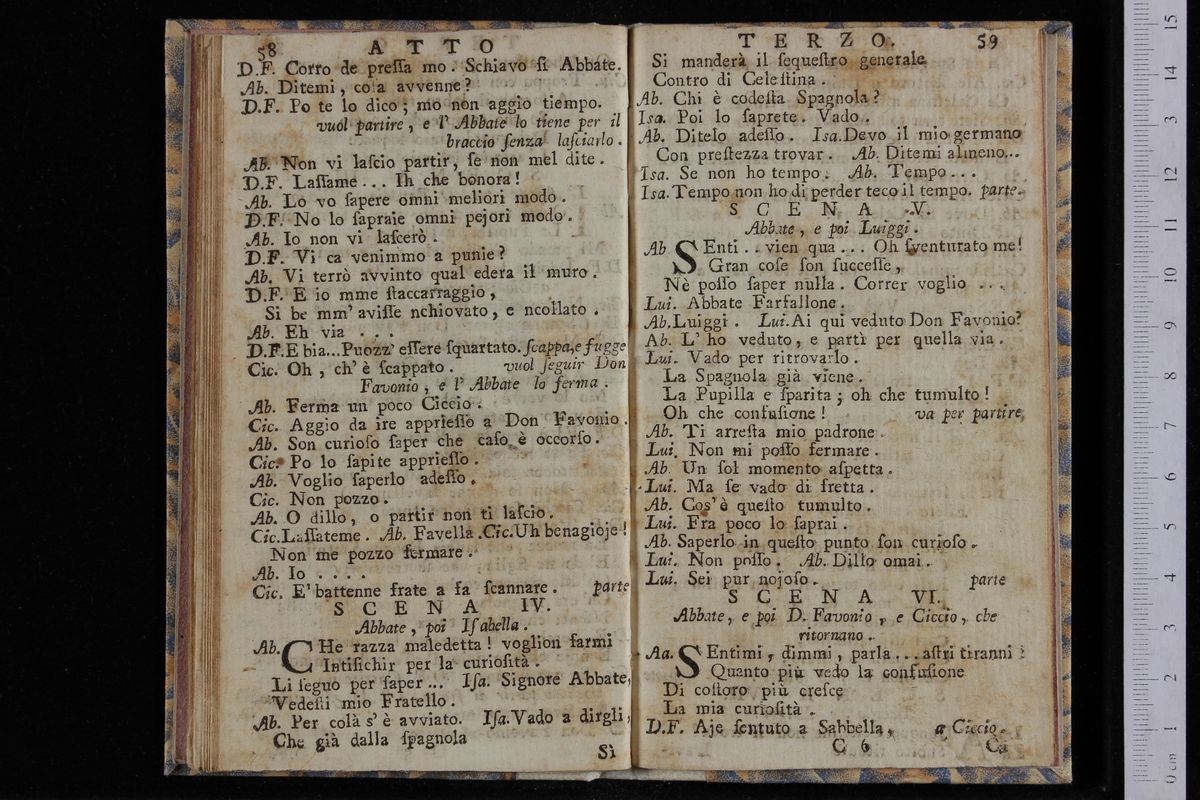 58 ATTO
D.F. Corro de pressa mo. Schiavo sì Abbate.
Ab. Ditemi, cosa avvenne?
D.F. Po te lo dico; mo non aggio tiempo.
vuol partire, e l' Abbate lo tiene per il
braccio senza lasciarlo.
Ab. Non vi lascio partir, se non mel dite.
D.F. Lassame... Ih che bonora!
Ab. Lo vo sapere omni meliori modo.
D.F. No lo sapraie omni pejori modo.
Ab. Io non vi lascerò.
D.F. Vi ca venimmo a punie?
Ab. Vi terrò avvinto qual edera il muro.
D.F. E io mme staccarraggio,
Si be mm' avisse nchiovato, e ncollato.
Ab. Eh via . . .
D.F. E bia... Puozz' essere squartato. scappa, e fugge
Cic. Oh, ch' è scappato. vuol seguir Don
Favonio, e l' Abbate lo ferma.
Ab. Ferma un poco Ciccio.
Cic. Aggio da ire appriesso a Don Favonio.
Ab. Son curioso saper che caso è occorso.
Cic. Po lo sapite appriesso.
Ab. Voglio saperlo adesso.
Cic. Non pozzo.
Ab. O dillo, o partir non ti lascio.
Cic. Lassateme. Ab. Favella. Cic. Uh benagioje!
Non me pozzo fermare.
Ab. Io . . . .
Cic. E' battenne frate a fa scannare. parte
SCENA IV.
Abbate, poi Isabella.
Ab. CHe razza maledetta! voglion farmi
Intisichir per la curiosità.
Li seguo per saper... Isa. Signore Abbate,
Vedesti mio Fratello.
Ab. Per colà s' è avviato. Isa. Vado a dirgli,
Che già dalla spagnola
Sì
TERZO. 59
Si manderà il sequestro generale
Contro di Celestina.
Ab. Chi è codesta Spagnola?
Isa. Poi lo saprete. Vado.
Ab. Ditelo adesso. Isa. Devo il mio germano
Con prestezza trovar. Ab. Ditemi almeno...
Isa. Se non ho tempo. Ab. Tempo...
Isa. Tempo non ho di perder teco il tempo. parte.
SCENA V.
Abbate, e poi Luiggi.
Ab SEnti.. vien qua... Oh sventurato me!
Gran cose son successe,
Nè posso saper nulla. Correr voglio ...
Lui. Abbate Farfallone.
Ab. Luiggi. Lui. Ai qui veduto Don Favonio?
Ab. L' ho veduto, e partì per quella via.
Lui. Vado per ritrovarlo.
La Spagnola già viene.
La Pupilla e sparita; oh che tumulto!
Oh che confusione! va per partire.
Ab. Ti arresta mio padrone.
Lui. Non mi posso fermare.
Ab. Un sol momento aspetta.
Lui. Ma se vado di fretta.
Ab. Cos' è questo tumulto.
Lui. Fra poco lo saprai.
Ab. Saperlo in questo punto son curioso.
Lui. Non posso. Ab. Dillo omai.
Lui. Sei pur nojoso. parte
SCENA VI.
Abbate, e poi D. Favonio, e Ciccio, che
ritornano.
Aa. SEntimi, dimmi, parla... astri tiranni!
Quanto più vedo la confusione
Di costoro più cresce
La mia curiosità.
D.F. Aje sentuto a Sabbella, a Ciccio.
C 6 Ca
0 cm 1 2 3 4 5 6 7 8 9 10 11 12 13 14 15